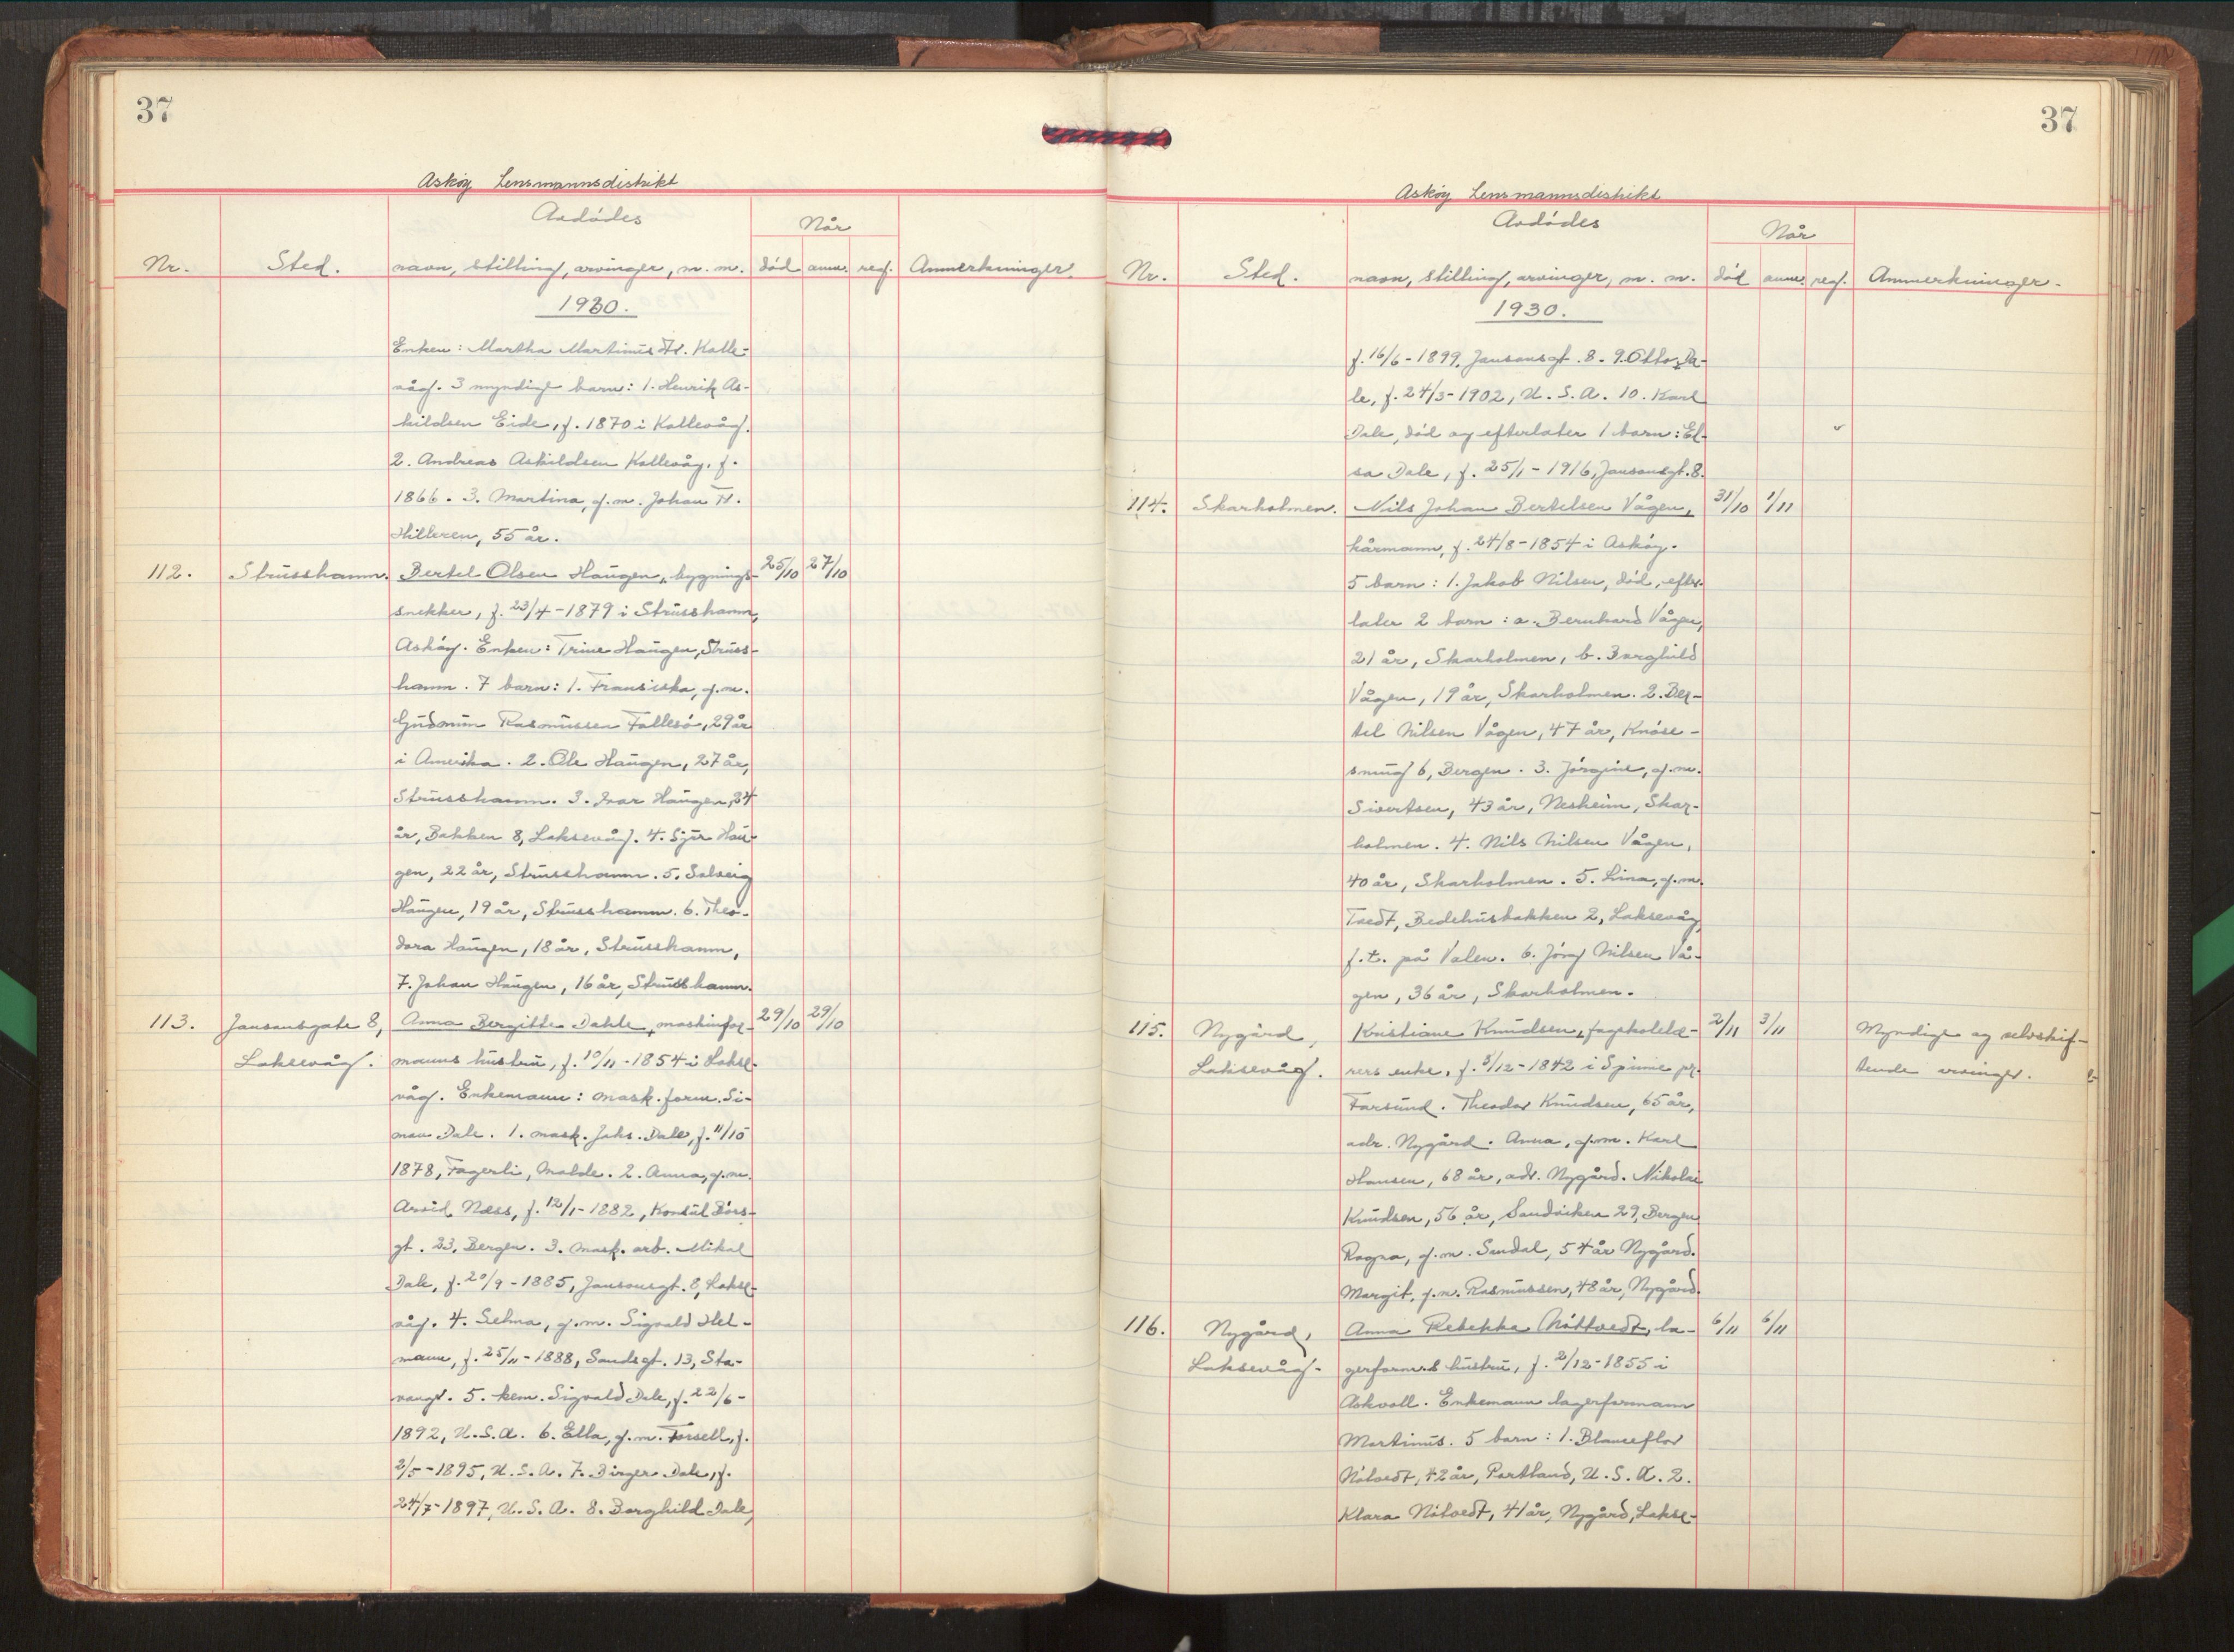 37
Askøy Lensmannsdistrikt
Avdødes
Når
Nr. Sted. navn, stilling, arvinger, m. m. død anm. reg. Anmerkninger.
1930.
Enken: Martha Martinus Dtr. Kolle-
våg. 3 myndige barn: 1. Henrik As-
kildsen Eide, f. 1870 i Kollevåg.
2. Andreas Askildsen Kollevåg, f.
1866. 3. Martina, g.m. Johan
Hilleren, 55 år.
112. Strusshamn. Bertel Olsen Haugen, bygnings- 25/10 27/10
snekker, f. 23/4-1879 i Strusshamn,
Askøy. Enken: Trine Haugen, Struss-
hamn. 7 barn: 1. Fransiska, g.m.
Gudmun Rasmussen Follesø, 29 år
i Amerika. 2. Ole Haugen, 27 år,
Strusshamn. 3. Ivar Haugen, 24
år, Bakken 8, Laksevåg. 4. Sjur Hau-
gen, 22 år, Strusshamn. 5. Solveig
Haugen, 19 år, Strusshamn. 6. Theo-
dora Haugen, 18 år, Strusshamn,
7. Johan Haugen, 16 år, Strusshamn.
113. Jansonsgate 8, Anna Bergitte Dahle, maskinfor- 29/10 29/10
Laksevåg. manns hustru, f. 10/11-1854 i Lakse-
våg. Enkemann: Mask. form. Si-
mon Dale. 1. mask. Johs. Dale, f. 11/10
1878, Fagerli, Molde. 2. Anna, g.m.
Arvid Næss, f. 12/1-1882, Konsul Børs-
gt. 23, Bergen. 3. Mask. arb. Mikal
Dale, f. 20/9-1885, Jansonsgt. 8, Lakse-
våg. 4. Selma, g.m. Sigvald Hel-
mann, f. 25/11-1888, Sandsgt. 13, Sta-
vanger. 5. kem. Sigvald Dale, f. 22/6-
1892, U.S.A. 6. Ella, g.m. Forsell, f.
2/5-1895, U.S.A. 7. Birger Dale, f.
24/7-1897, U.S.A. 8. Borghild Dale,
37
Askøy Lensmannsdistrikt
Avdødes
Når
Nr. Sted. navn, stilling, arvinger, m. m. død anm. reg. Anmerkninger.
1930.
f. 16/6-1899, Jansonsgt. 8. 9. Otto Da-
le, f. 24/3-1902, U.S.A. 10. Karl
Dale, død og efterlater 1 barn: El-
sa Dale, f. 25/1-1916, Jansonsgt. 8.
114. Skarholmen. Nils Johan Bertelsen Vågen, 31/10 1/11
kårmann, f. 24/8-1854 i Askøy.
5 barn: 1. Jakob Nilsen, død, efter-
later 2 barn: a. Bernhard Vågen,
21 år, Skarholmen, b. Borghild
Vågen, 19 år, Skarholmen. 2. Ber-
tel Nilsen Vågen, 47 år, Knøse-
smug 6, Bergen. 3. Jørgine, g.m.
Sivertsen, 43 år, Nesheim, Skar-
holmen. 4. Nils Nilsen Vågen,
40 år, Skarholmen. 5. Lina, g.m.
Tvedt, Bedehusbakken 2, Laksevåg,
f.t. på Valen. 6. Jørg Nilsen Vå-
gen, 36 år, Skarholmen.
115. Nygård, Kristiane Knudsen, fagskolelæ- 2/11 3/11 Myndige og selvskif-
Laksevåg. rers enke, f. 5/12-1842 i Spinne pr. tende arvinger.
Farsund. Theodor Knudsen, 65 år,
adr. Nygård. Anna, g.m. Karl
Hansen, 68 år, adr. Nygård. Nikolai
Knudsen, 56 år, Sandviken 29, Bergen
Ragna, g.m. Sundal, 54 år Nygård.
Margit, g.m. Rasmussen, 48 år, Nygård.
116. Nygård, Anna Rebekka Nøttvedt, la- 6/11 6/11
Laksevåg. gerformanns hustru, f. 2/12-1855 i
Askvoll. Enkemann lagerformann
Martinus. 5 barn: 1. Blanceflor
Nøtvedt, 42 år, Portland, U.S.A. 2.
Klara Nøtvedt, 41 år, Nygård, Lakse-